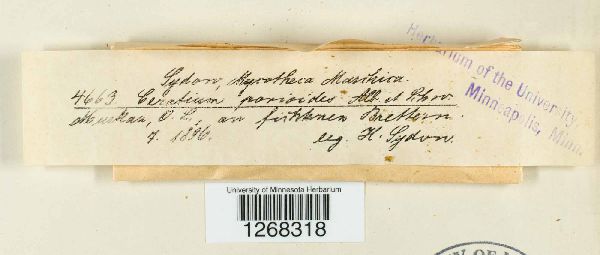 Sydow, Mycotheca Marchica.
4663 Ceratium porioides Alb. et Schw.
Muskau, O. L., an fichtenen Brettern.
7. 1896. leg. H. Sydow.
Herbarium of the University
Minneapolis, Minn.
University of Minnesota Herbarium
1268318